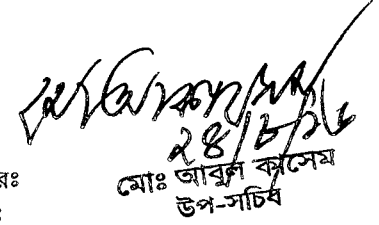 ২৪/৮/১৬
মোঃ আবুল কাসেম
উপ-সচিব
রঃ